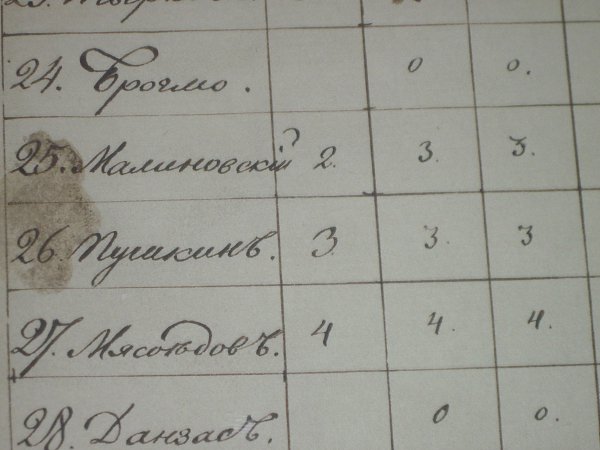 24. Броглио. 0 0.
25. Малиновскій 2. 3. 3.
26. Пушкинъ. 3 3. 3
27. Мясоѣдовъ. 4 4. 4.
28. Данзасъ. 0 0.